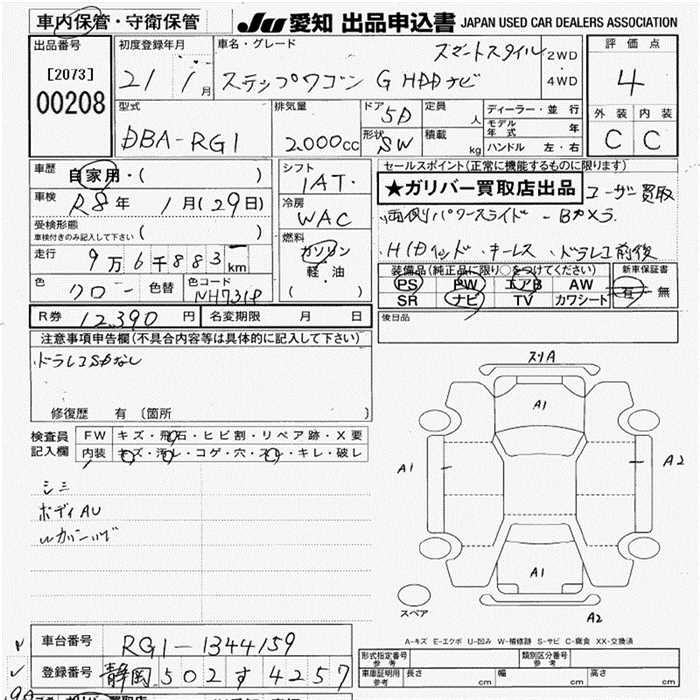 車内保管・守衛保管
JU 愛知 出品申込書 JAPAN USED CAR DEALERS ASSOCIATION
出品番号 [2073] 00208
初度登録年月 21年 1月
車名・グレード ステップワゴン G HDDナビ スマートスタイル 2WD 4WD
評価点 4
外装 内装
C C
型式 DBA-RG1
排気量 2.000cc
ドア 5D
形状 SW
定員 人
積載 kg
ディーラー・並行
モデル年式 年
ハンドル 左・右
車歴 自家用・( )
車検 R8年 1月(29日)
受検形態 車検付きのみ記入して下さい ( )
走行 9万6千883km
色 クロー 色替 色コード NH731P
シフト IAT・
冷房 WAC
燃料 ガソリン 軽・油 ( )
セールスポイント(正常に機能するものに限ります)
★ガリバー買取店出品 ユーザー買取
両側パワースライド - Bカメラ
キーレス ドラレコ前後
装備品(純正品に限り○をつけてください) 新車保証書
PS PW エアB AW 有・無
SR ナビ TV カワシート
R券 12,390円 名変期限 月 日
後日品
注意事項申告欄(不具合内容等は具体的に記入して下さい)
ドラレコSDなし
修復歴 有 〔箇所 〕
検査員記入欄 FW キズ・飛石・ヒビ割・リペア跡・X要
内装 キズ・汚レ・コゲ・穴・スレ・キレ・破レ
シミ
ボディAU
スリA
A1
A1
A2
A1
A2
スペア
A-キズ E-エクボ U-凹み W-補修跡 S-サビ C-腐食 XX-交換済
車台番号 RG1-1344159
登録番号 静岡 502 す 4257
形式指定番号 参考 類別区分番号 参考
車庫証明用 参考 長さ cm 幅 cm 高さ cm